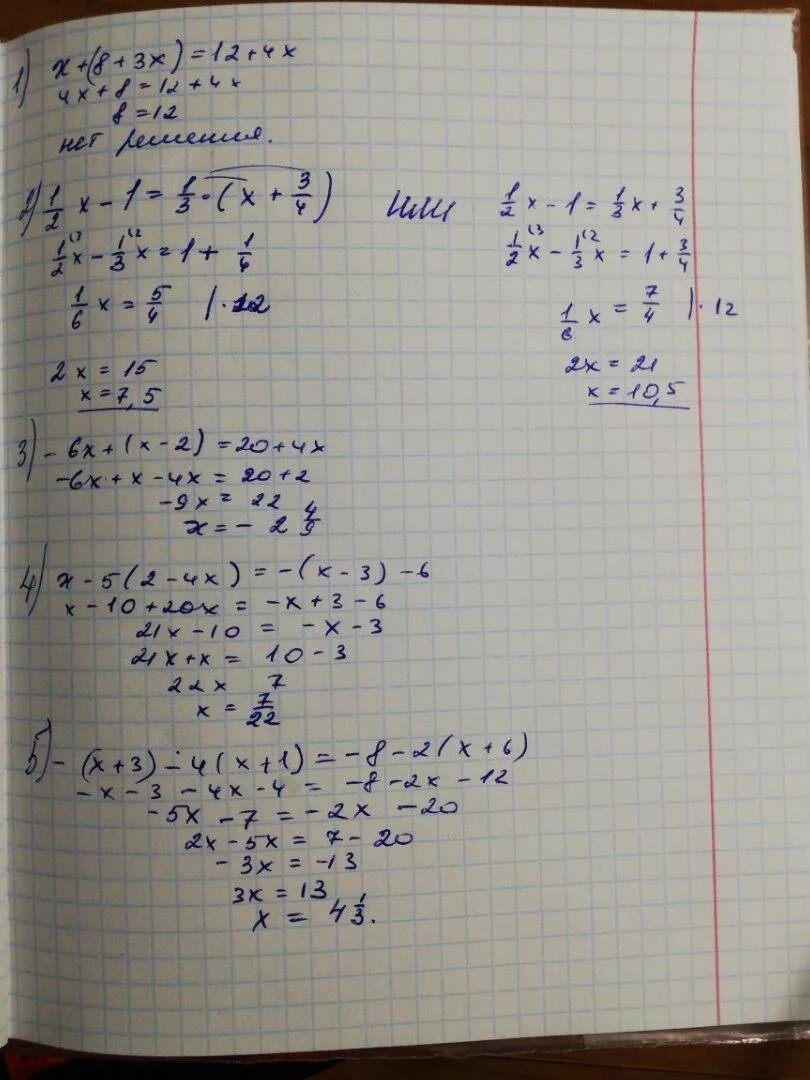 1) x+(8+3x)=12+4x
4x+8=12+4x
8=12
нет решения.
2) 1/2 x-1=1/3·(x+3/4)
1/2 x-1/3 x=1+1/4
1/6 x=5/4 |·12
2x=15
x=7,5
или
1/2 x-1=1/3 x+3/4
1/2 x-1/3 x=1+3/4
1/6 x=7/4 |·12
2x=21
x=10,5
3) -6x+(x-2)=20+4x
-6x+x-4x=20+2
-9x=22
x=-2 4/9
4) x-5(2-4x)=-(x-3)-6
x-10+20x=-x+3-6
21x-10=-x-3
21x+x=10-3
22x 7
x=7/22
5) -(x+3)-4(x+1)=-8-2(x+6)
-x-3-4x-4=-8-2x-12
-5x-7=-2x-20
2x-5x=7-20
-3x=-13
3x=13
x=4 1/3.